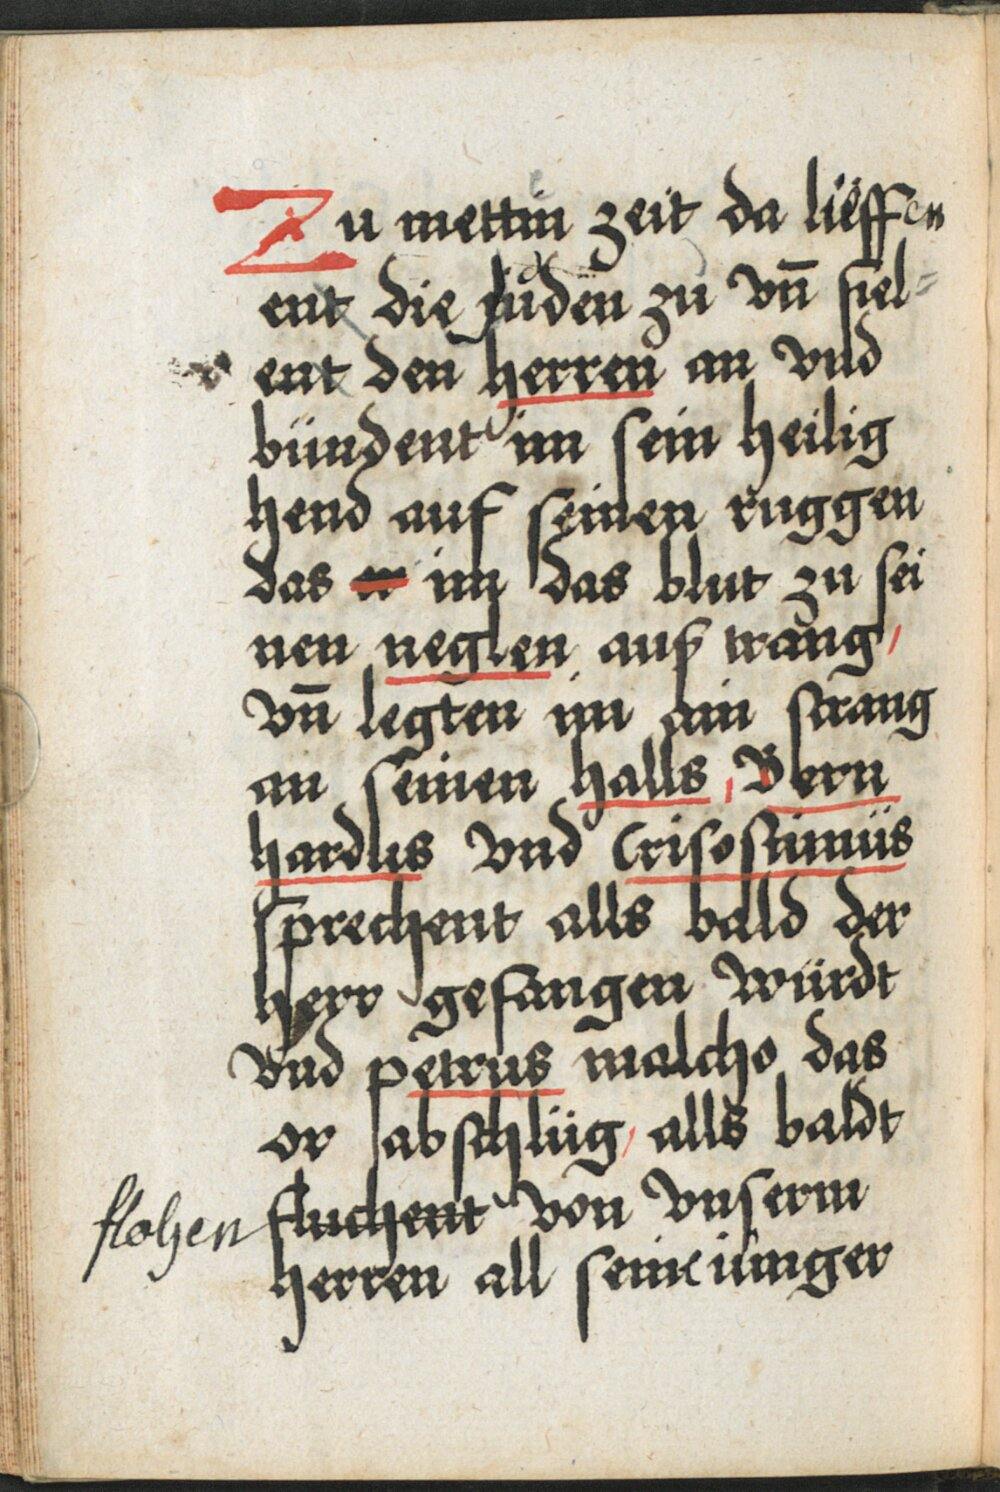 Zu mettin zeit da lieffen
ent die juden zu vn̄ fiel-
ent den herren an vnd
bündent im sein heilig
hend auf seinen ruggen
das er im das blut zu sei
nen neglen auß trang,
vn̄ legten im ain strang
an seinen halls, Bern
hardus vnd Crisostimüs
sprechent alls bald der
herr gefangen würdt
Vnd petrus malcho das
or abschlüg, alls baldt
flohen fluchent von vnserm
herren all sein iünger